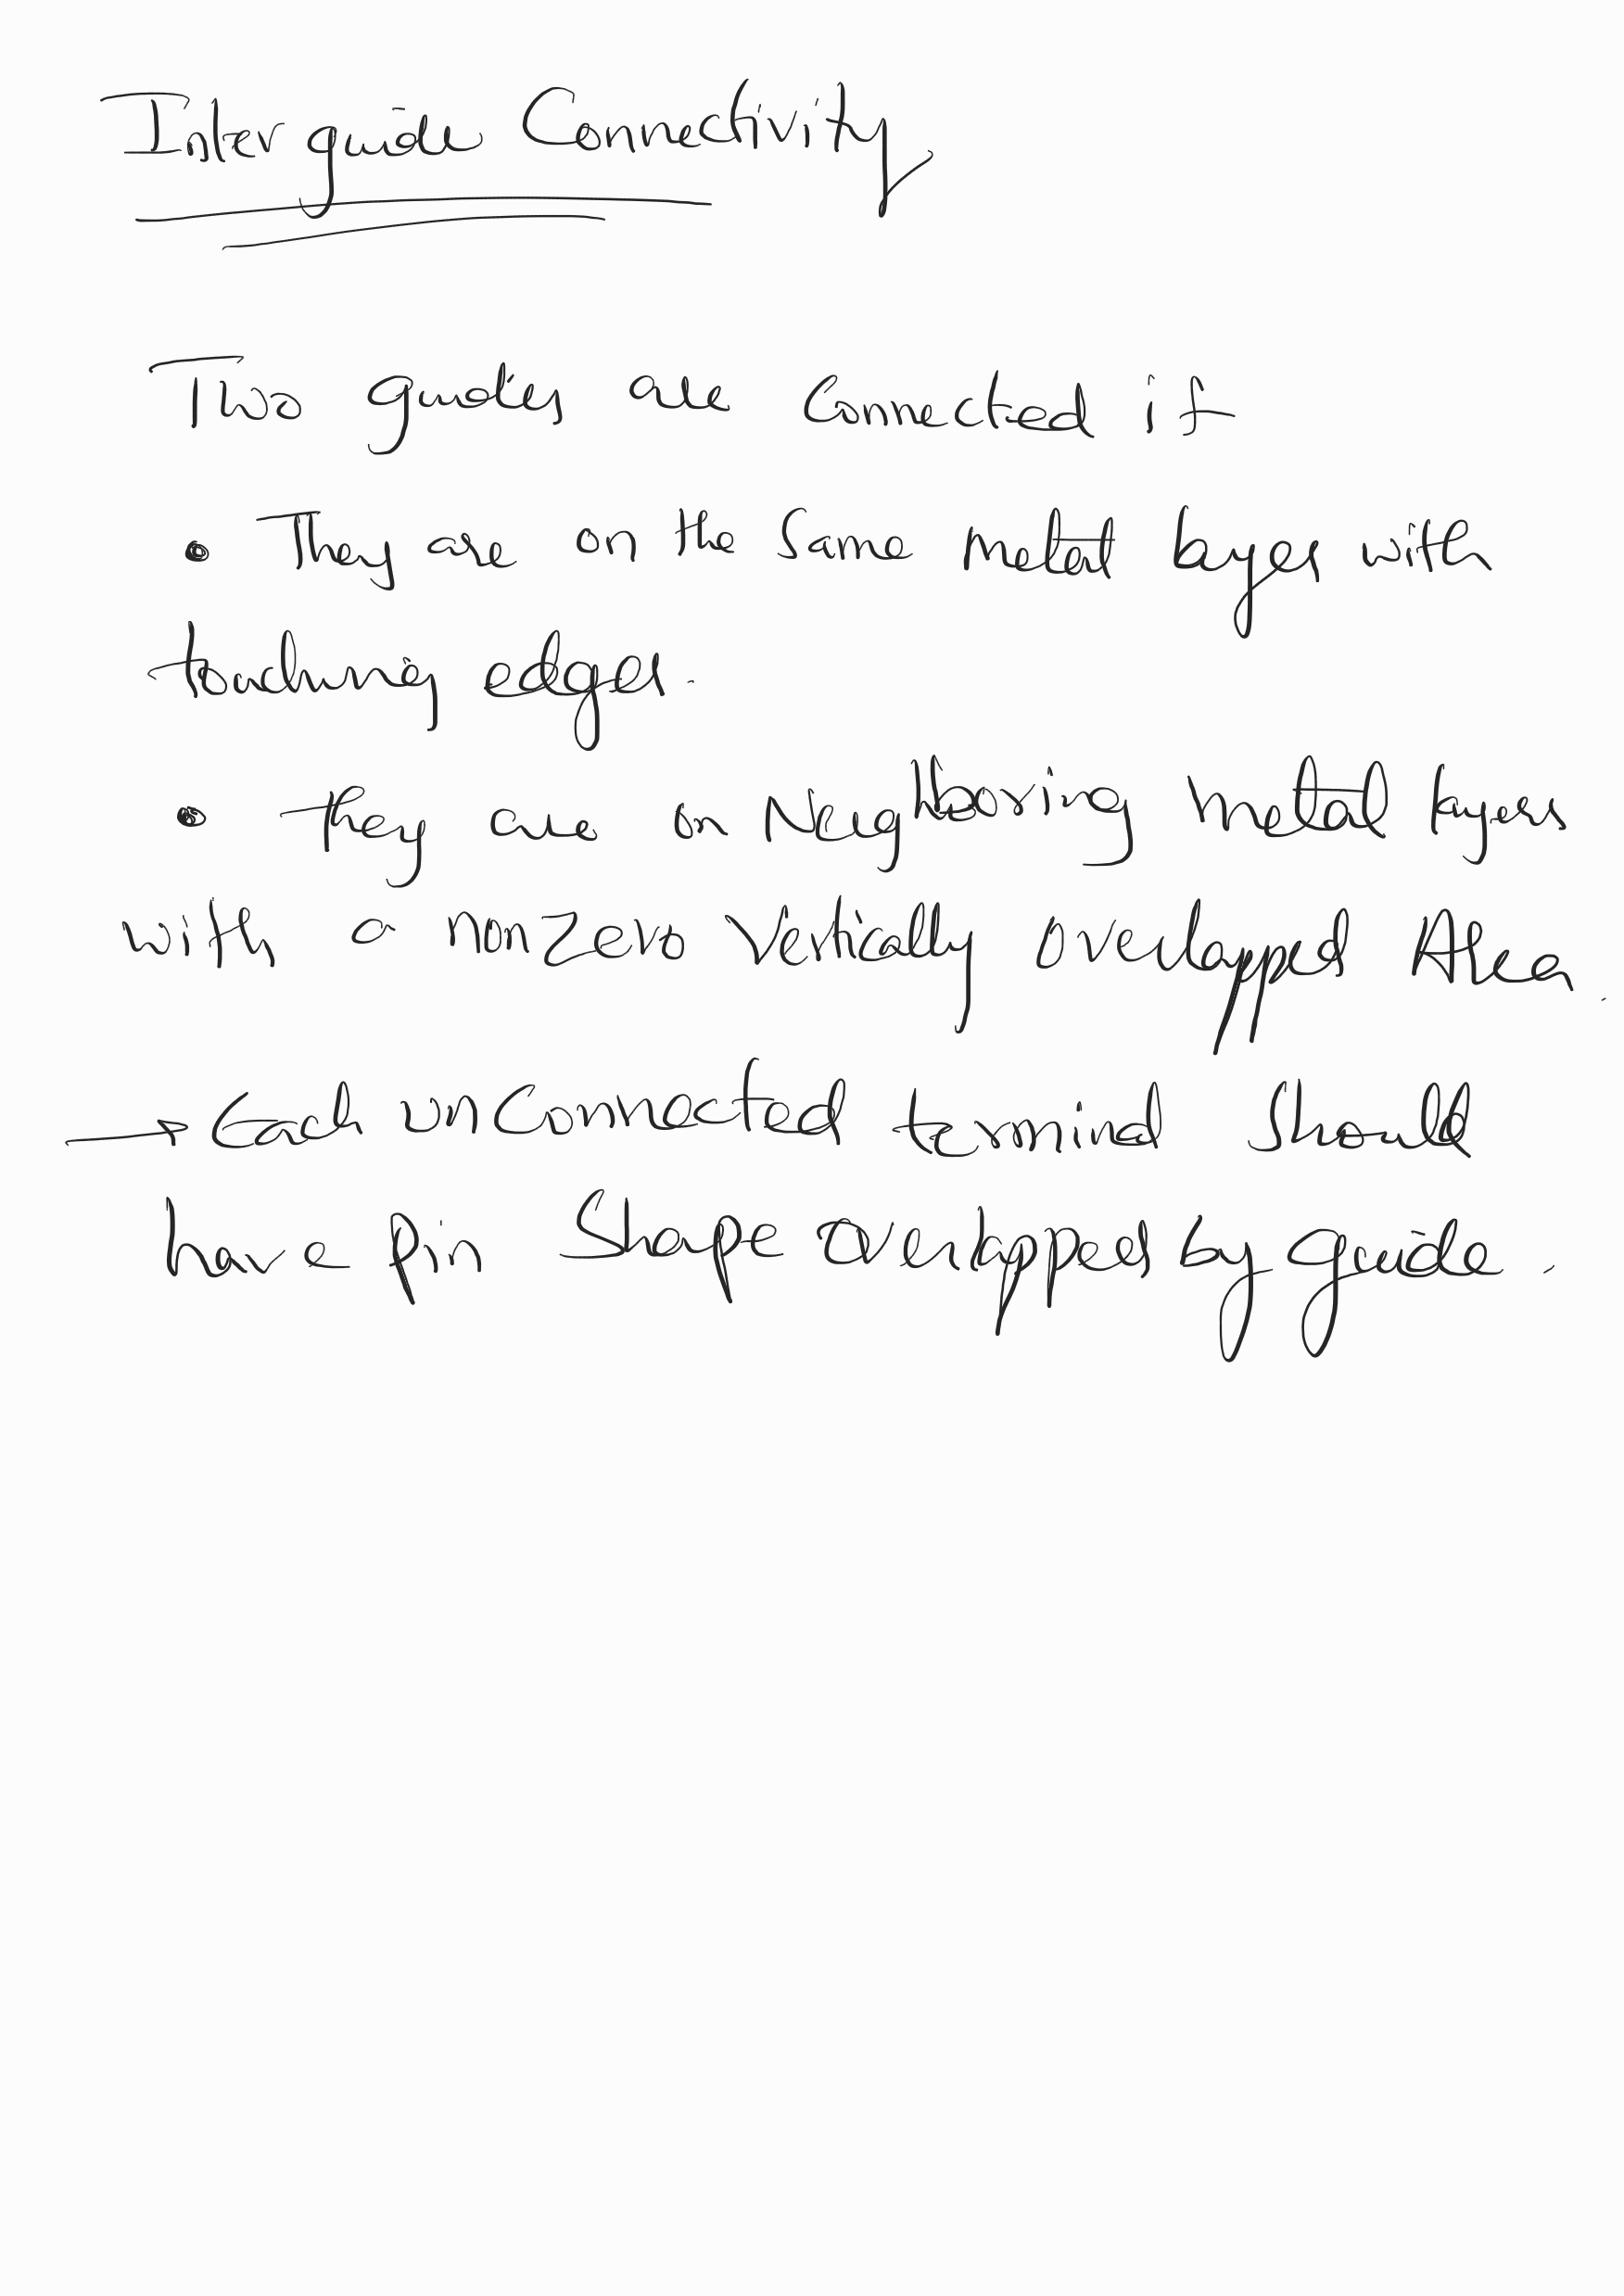 Inter guide Connectivity
Two guides are Connected if
• They are on the Same metal layer with
touching edges.
• They are on Neighboring metal layers
with a nonzero Vertically overlapped Area.
→ Each unConnected terminal Should
have pin Shape Overlapped by guide.